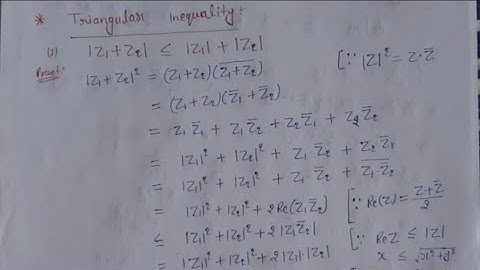 * Triangular Inequality:-
(1) |Z₁+Z₂| ≤ |Z₁| + |Z₂|
Proof:- |Z₁+Z₂|² = (Z₁+Z₂)(Z̅₁̅+̅Z̅₂̅) [∵ |Z|² = Z·Z̅
= (Z₁+Z₂)(Z̅₁+Z̅₂)
= Z₁Z̅₁ + Z₁Z̅₂ + Z₂Z̅₁ + Z₂Z̅₂
= |Z₁|² + |Z₂|² + Z₁Z̅₂ + Z₂Z̅₁
= |Z₁|² + |Z₂|² + Z₁Z̅₂ + Z̅₁̅·̅Z̅₂
= |Z₁|² + |Z₂|² + 2Re(Z₁Z̅₂) [∵ Re(Z) = (Z+Z̅)/2
≤ |Z₁|² + |Z₂|² + 2|Z₁Z̅₂| [∵ ReZ ≤ |Z|
= |Z₁|² + |Z₂|² + 2|Z₁|·|Z₂| x ≤ √(x²+y²)